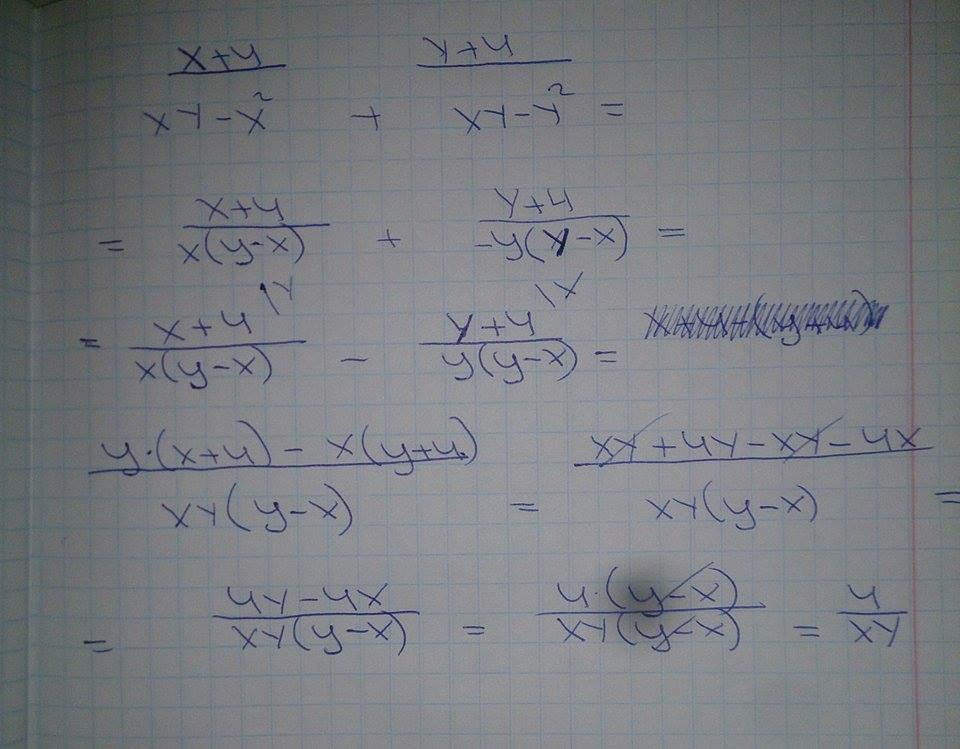 x+4 / xy-x² + y+4 / xy-y² =
= x+4 / x(y-x) + y+4 / -y(y-x) =
= x+4 \y / x(y-x) - y+4 \x / y(y-x) =
y·(x+4) - x(y+4) / xy(y-x) = xy+4y-xy-4x / xy(y-x) =
= 4y-4x / xy(y-x) = 4·(y-x) / xy(y-x) = 4 / xy